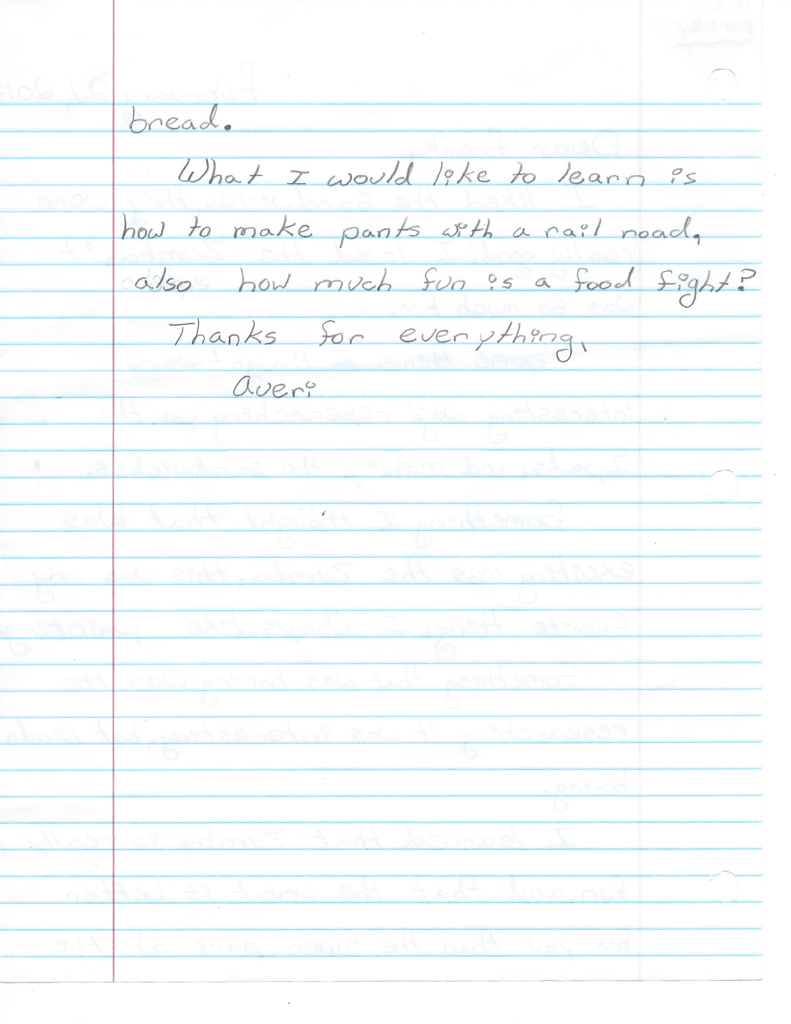 bread.
What I would like to learn is
how to make pants with a rail road,
also how much fun is a food fight?
Thanks for everything,
Averi